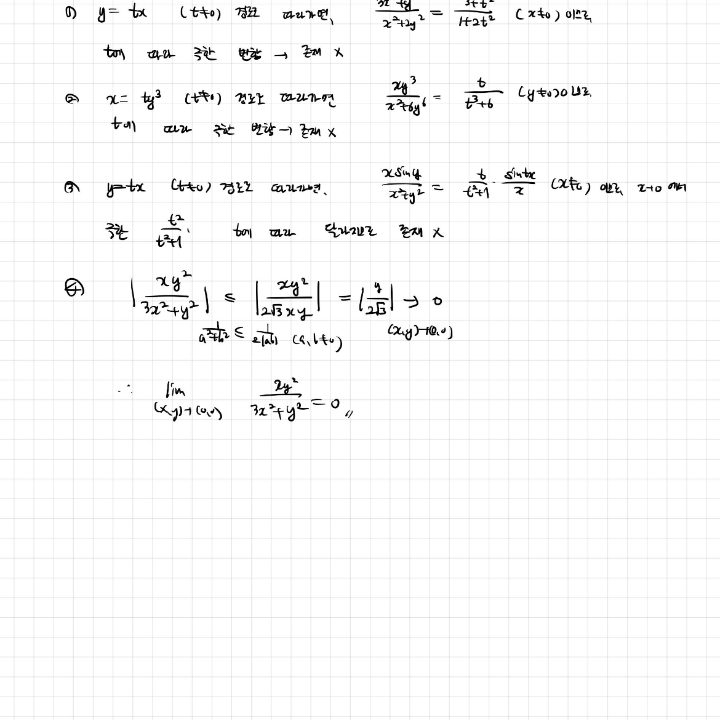 ① y = tx (t≠0) 경로 따라가면, x²+2y² = 1+2t² (x≠0) 이므로
t에 따라 극한 변함 → 존재 x
② x = ty³ (t≠0) 경로로 따라가면 xy³/x²+6y⁶ = t/t²+6 (y≠0) 이므로
t에 따라 극한 변함 → 존재 x
③ y=tx (t≠0) 경로로 따라가면, x sin y/x²+y² = t/t²+1 · sin tx/x (x≠0) 이므로 x→0 에서
극한 t²/t²+1. t에 따라 달라지므로 존재 x
④ |xy²/3x²+y²| ≤ |xy²/2√3xy| = |y/2√3| → 0
1/a²+b² ≤ 1/2|ab| (a, b≠0) (x,y)→(0,0)
∴ lim (x,y)→(0,0) xy²/3x²+y² = 0 〃